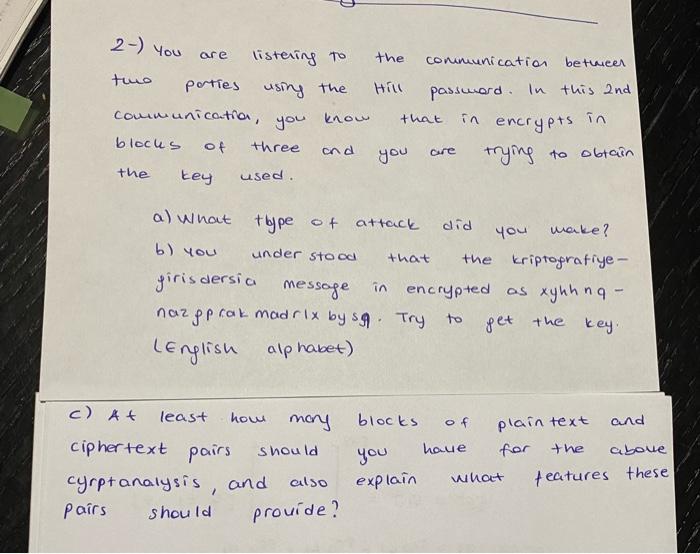 2-) You are listening to the communication between
two parties using the Hill password. In this 2nd
communication, you know that in encrypts in
blocks of three and you are trying to obtain
the key used.
a) What type of attack did you make?
b) You understood that the kriptografiye-
girisdersia message in encrypted as xykhnq-
nazpprakmadrlxbysq. Try to get the key.
(English alphabet)
c) At least how many blocks of plaintext and
ciphertext pairs should you have for the above
cyrptanalysis, and also explain what features these
pairs should provide?